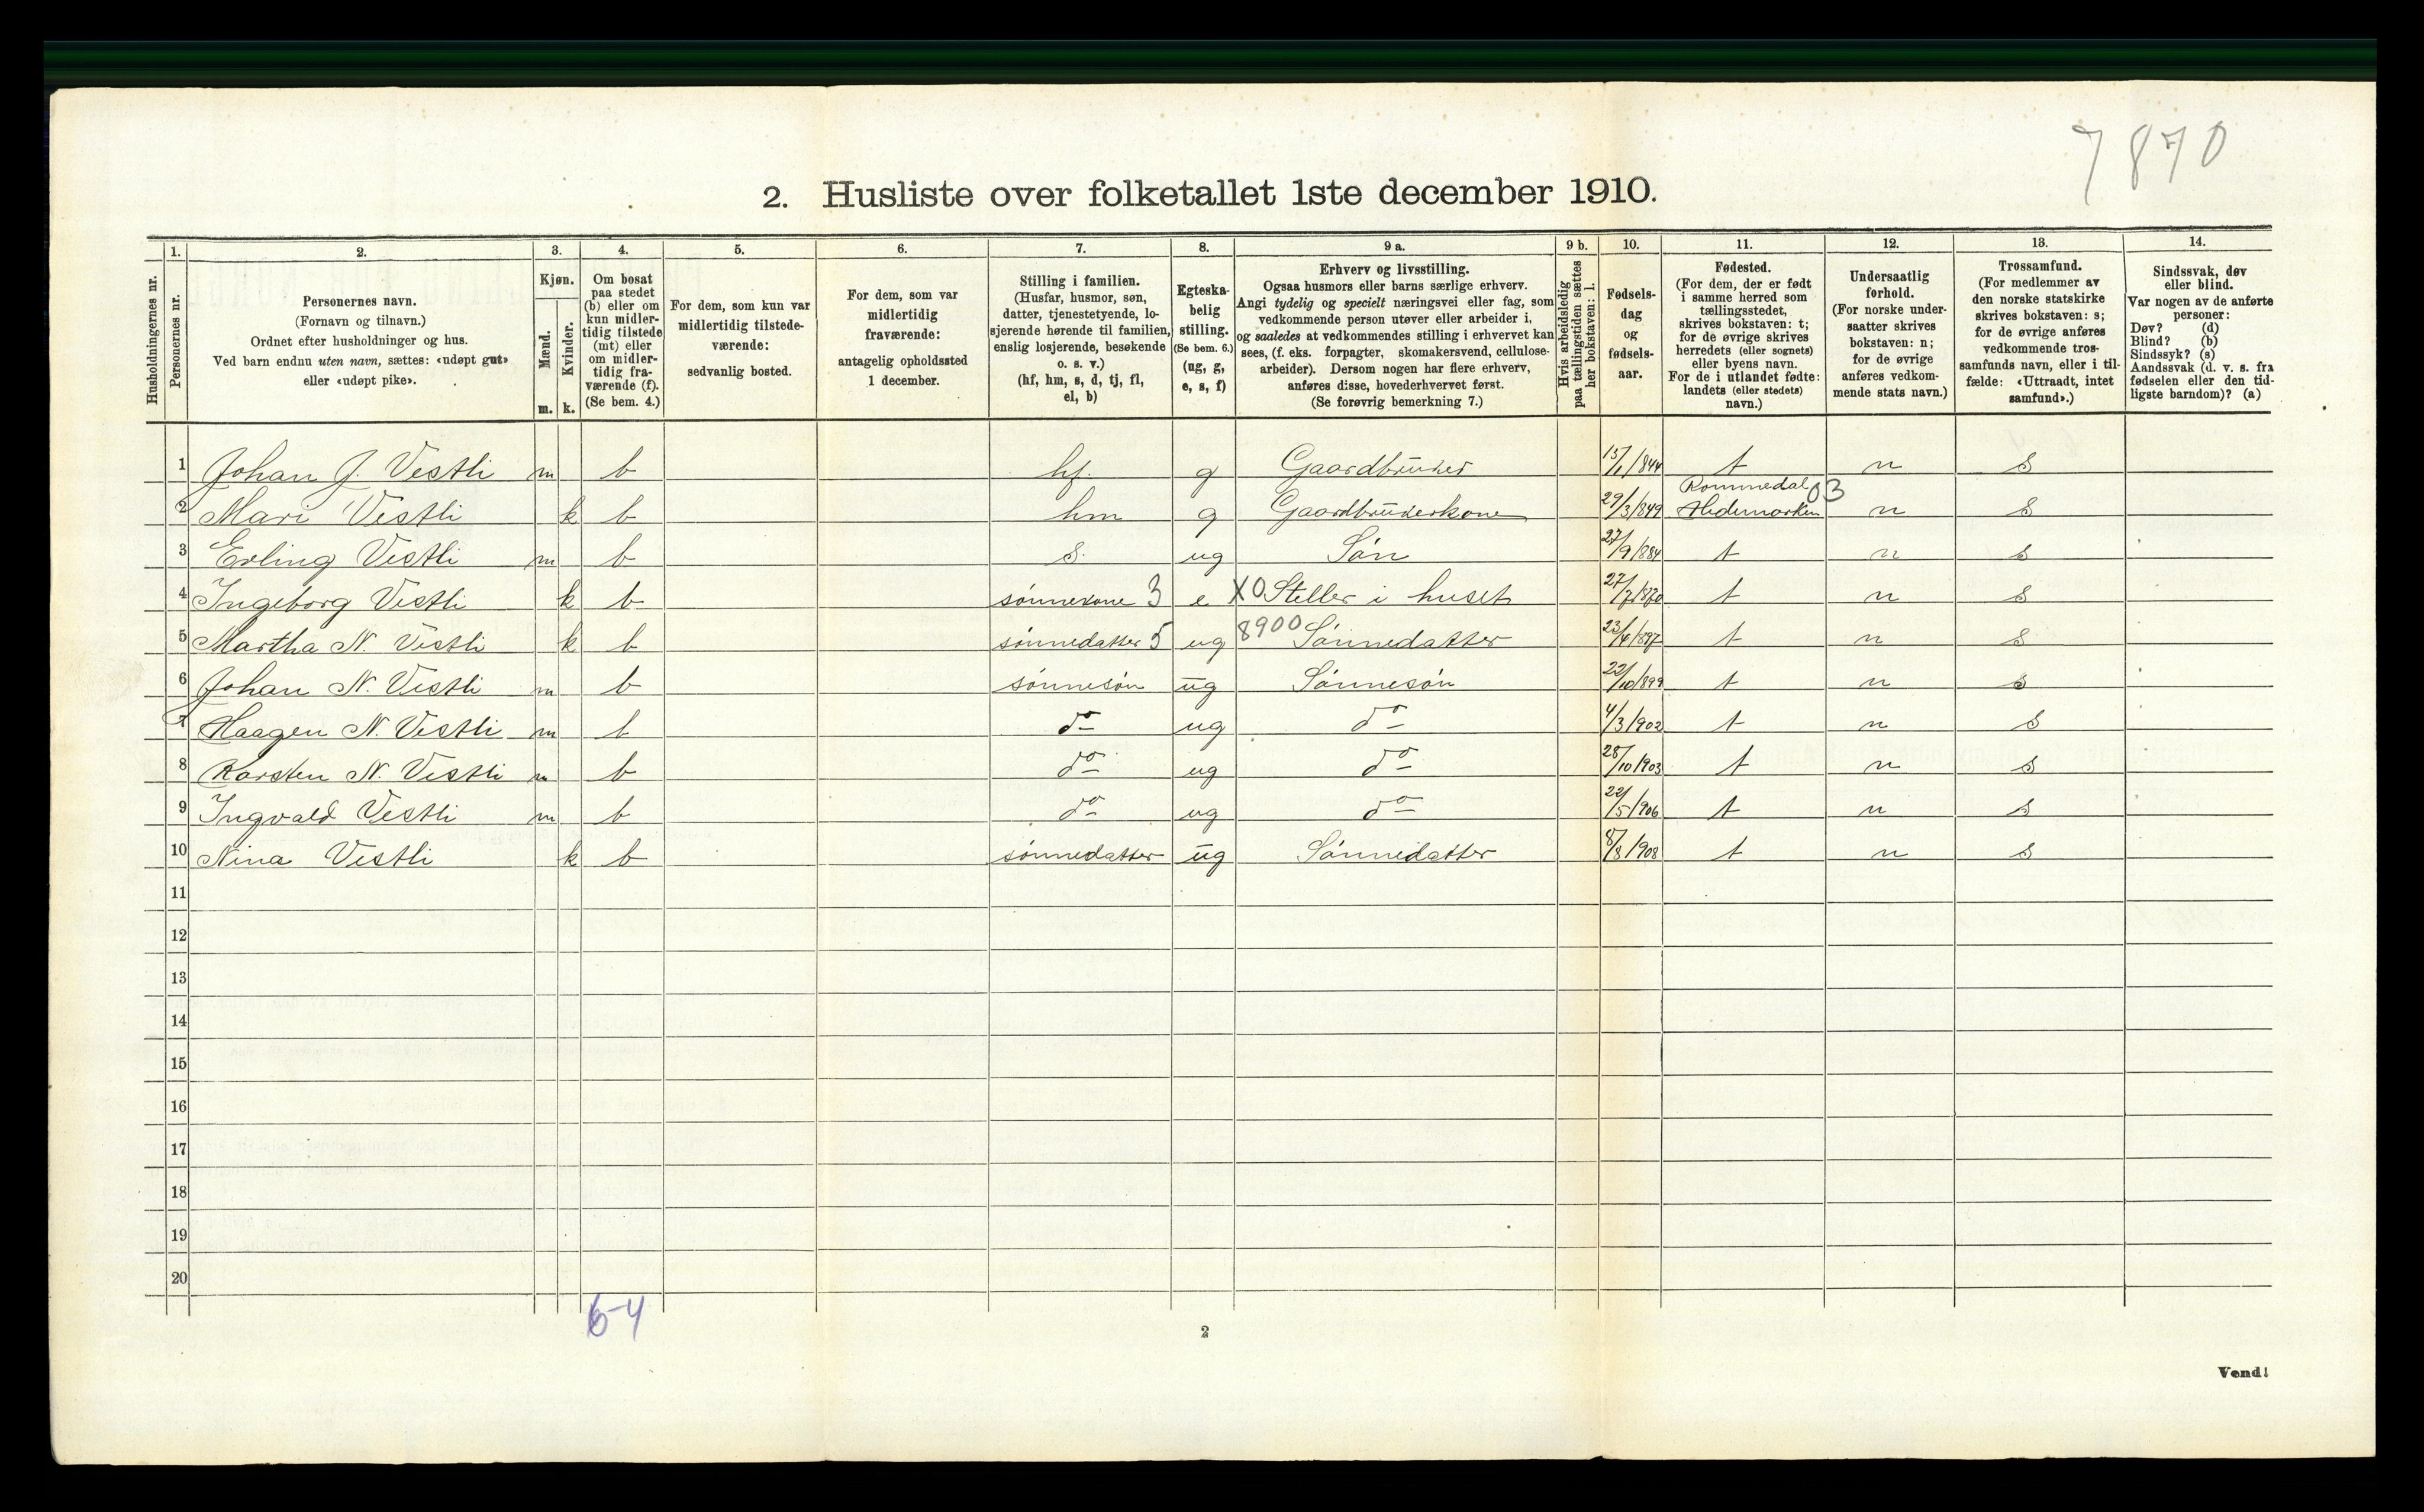 7870
2. Husliste over folketallet 1ste december 1910.
Husholdningernes nr.
1. Personernes nr.
2. Personernes navn.
(Fornavn og tilnavn.)
Ordnet efter husholdninger og hus.
Ved barn endnu uten navn, sættes: «udøpt gut»
eller «udøpt pike».
3. Kjøn.
Mænd. m.
Kvinder. k.
4. Om bosat
paa stedet
(b) eller om
kun midler-
tidig tilstede
(mt) eller
om midler-
tidig fra-
værende (f).
(Se bem. 4.)
5. For dem, som kun var
midlertidig tilstede-
værende:
sedvanlig bosted.
6. For dem, som var
midlertidig
fraværende:
antagelig opholdssted
1 december.
7. Stilling i familien.
(Husfar, husmor, søn,
datter, tjenestetyende, lo-
sjerende hørende til familien,
enslig losjerende, besøkende
o. s. v.)
(hf, hm, s, d, tj, fl,
el, b)
8. Egteska-
belig
stilling.
(Se bem. 6.)
(ug, g,
e, s, f)
9 a. Erhverv og livsstilling.
Ogsaa husmors eller barns særlige erhverv.
Angi tydelig og specielt næringsvei eller fag, som
vedkommende person utøver eller arbeider i,
og saaledes at vedkommendes stilling i erhvervet kan
sees, (f. eks. forpagter, skomakersvend, cellulose-
arbeider). Dersom nogen har flere erhverv,
anføres disse, hovederhvervet først.
(Se forøvrig bemerkning 7.)
9 b. Hvis arbeidsledig
paa tællingstiden sættes
her bokstaven: l.
10. Fødsels-
dag
og
fødsels-
aar.
11. Fødested.
(For dem, der er født
i samme herred som
tællingsstedet,
skrives bokstaven: t;
for de øvrige skrives
herredets (eller sognets)
eller byens navn.
For de i utlandet fødte:
landets (eller stedets)
navn.)
12. Undersaatlig
forhold.
(For norske under-
saatter skrives
bokstaven: n;
for de øvrige
anføres vedkom-
mende stats navn.)
13. Trossamfund.
(For medlemmer av
den norske statskirke
skrives bokstaven: s;
for de øvrige anføres
vedkommende tros-
samfunds navn, eller i til-
fælde: «Uttraadt, intet
samfund».)
14. Sindssvak, døv
eller blind.
Var nogen av de anførte
personer:
Døv? (d)
Blind? (b)
Sindssyk? (s)
Aandssvak (d. v. s. fra
fødselen eller den tid-
ligste barndom)? (a)
1 Johan J. Vestli m b hf. g Gaardbruker 15/1/844 t n s
Rommedal 03
2 Mari Vestli k b hm g Gaardbrukerkone 29/3/849 Hedemarken n s
3 Erling Vestli m b s. ug Søn 27/9/884 t n s
4 Ingeborg Vestli k b sønnekone 3 e X0 Steller i huset 27/7/870 t n s
5 Martha N. Vestli k b sønnedatter 5 ug 8900 Sønnedatter 23/6/897 t n s
6 Johan N. Vestli m b sønnesøn ug Sønnesøn 22/10/899 t n s
7 Haagen N. Vestli m b do ug do 4/3/902 t n s
8 Karsten N. Vestli m b do ug do 28/10/903 t n s
9 Ingvald Vestli m b do ug do 22/5/906 t n s
10 Nina Vestli k b sønnedatter ug Sønnedatter 8/8/908 t n s
11
12
13
14
15
16
17
18
19
20
6-4
2
Vend!